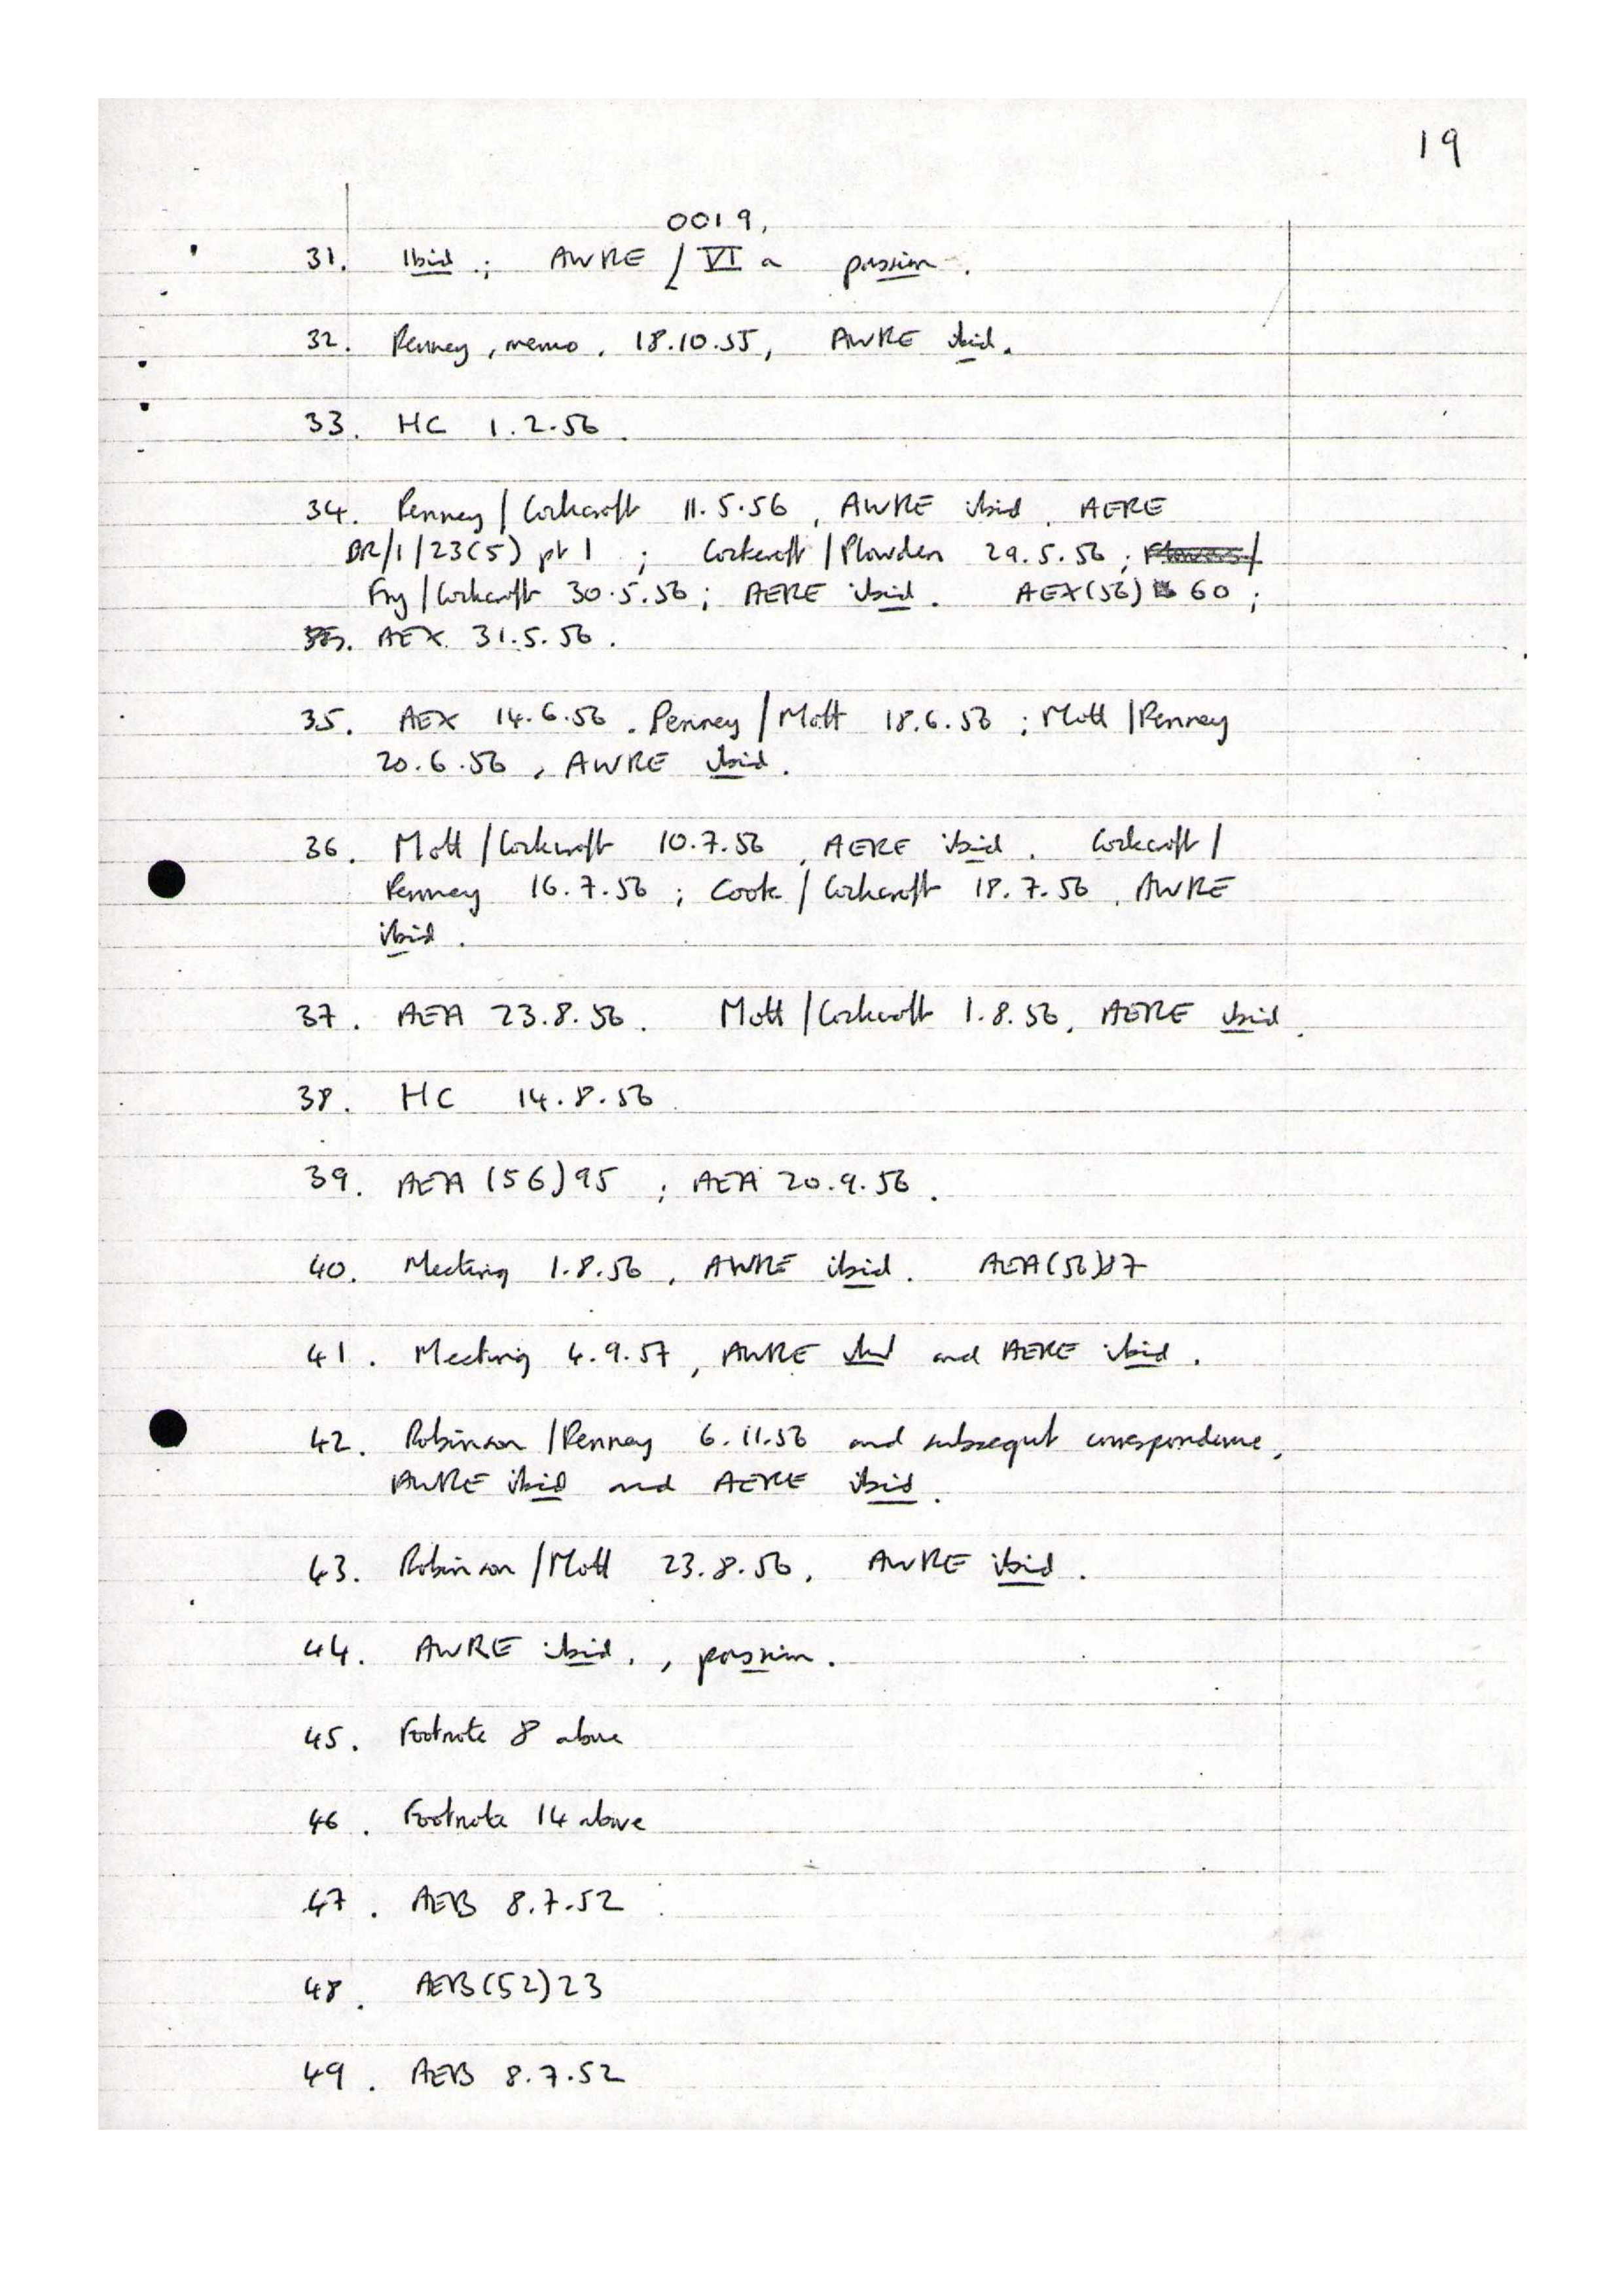 19
0019,
31. Ibid; AWRE / VI a passim.
32. Penney, memo, 18.10.55, AWRE ibid.
33. HC 1.2.56.
34. Penney/Cockcroft 11.5.56, AWRE ibid, AERE
BR/1/23(5) pt 1; Cockcroft/Plowden 29.5.56;
Fry/Cockcroft 30.5.56; AERE ibid. AEX(56) 60;
AEX 31.5.56.
35. AEX 14.6.56. Penney/Mott 18.6.56; Mott/Penney
20.6.56, AWRE ibid.
36. Mott/Cockcroft 10.7.56, AERE ibid. Cockcroft/
Penney 16.7.56; Cook/Cockcroft 18.7.56, AWRE
ibid.
37. AEA 23.8.56. Mott/Cockcroft 1.8.56, AERE ibid.
38. HC 14.8.56.
39. AEA (56)95; AEA 20.9.56.
40. Meeting 1.8.56, AWRE ibid.
41. Meeting 4.9.57, AWRE ibid and AERE ibid.
42. Robinson/Penney 6.11.56 and subsequt correspondence,
AWRE ibid and AERE ibid.
43. Robinson/Mott 23.8.56, AWRE ibid.
44. AWRE ibid., passim.
45. Footnote 8 above
46. Footnote 14 above
47. AEB 8.7.52
48. AEB(52)23
49. AEB 8.7.52